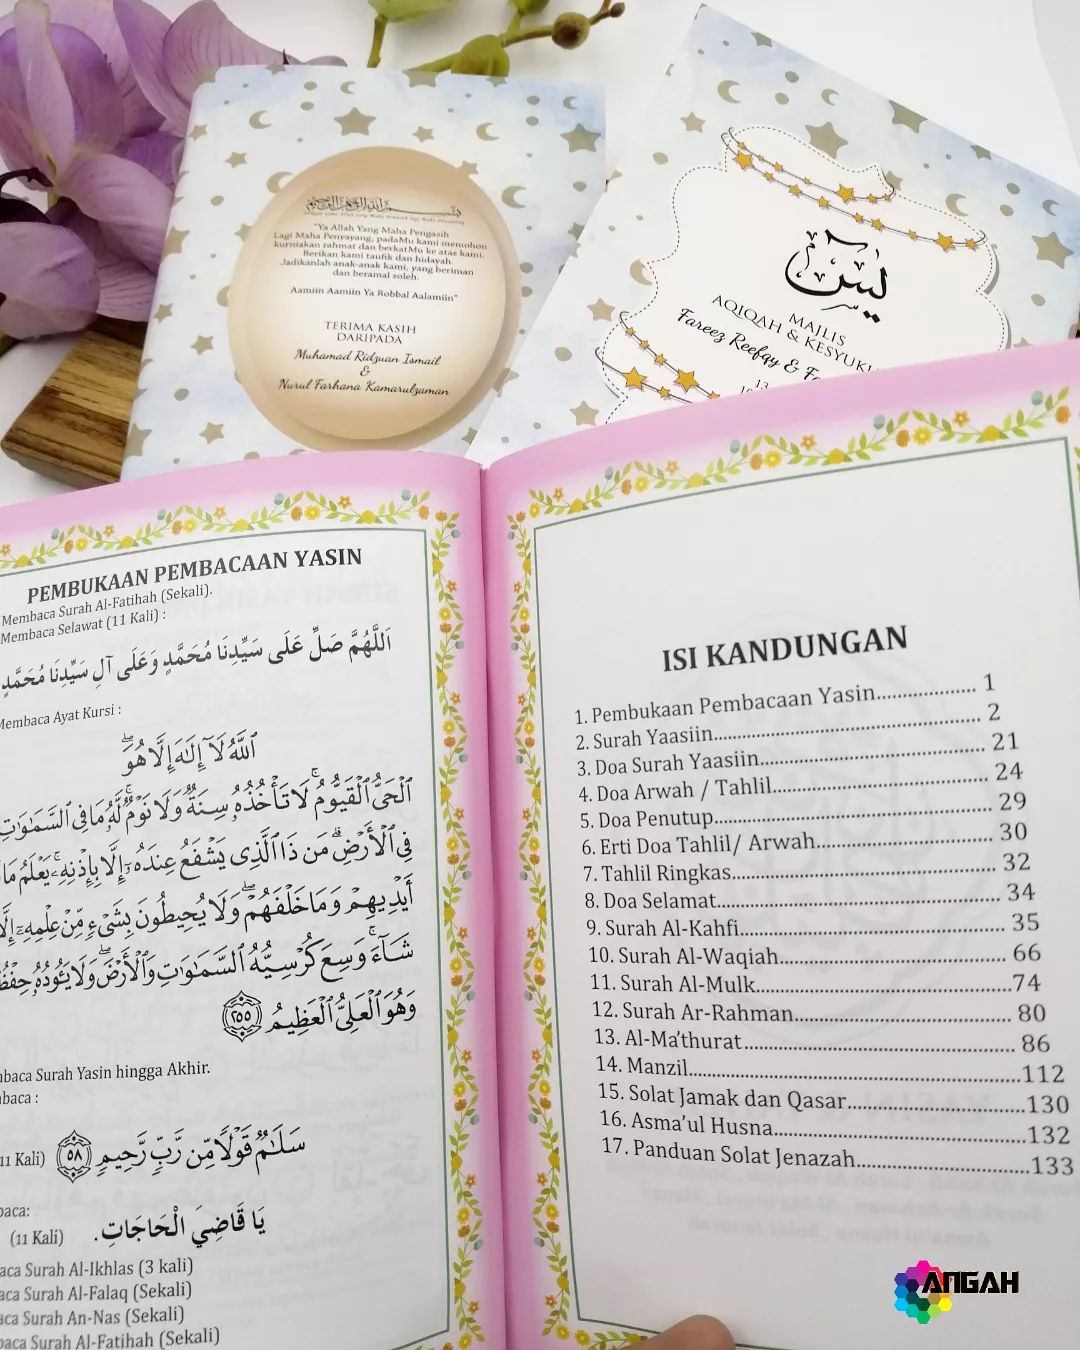 "Ya Allah Yang Maha Pengasih
Lagi Maha Penyayang, padaMu kami memohon
kurniakan rahmat dan berkatMu ke atas kami.
Berikan kami taufik dan hidayah.
Jadikanlah anak-anak kami, yang beriman
dan beramal soleh.
Aamiin Aamiin Ya Robbal Aalamiin"
TERIMA KASIH
DARIPADA
Muhamad Ridzuan Ismail
&
Nurul Farhana Kamarulzaman
يس
MAJLIS
AQIQAH & KESYUK
Fareez Reefqy & Fa
13
PEMBUKAAN PEMBACAAN YASIN
Membaca Surah Al-Fatihah (Sekali).
Membaca Selawat (11 Kali) :
اَللَّهُمَّ صَلِّ عَلَى سَيِّدِنَا مُحَمَّدٍ وَعَلَى آلِ سَيِّدِنَا مُحَمَّدٍ
Membaca Ayat Kursi :
ٱللَّهُ لَآ إِلَٰهَ إِلَّا هُوَ
ٱلْحَىُّ ٱلْقَيُّومُ ۚ لَا تَأْخُذُهُۥ سِنَةٌ وَلَا نَوْمٌ ۚ لَّهُۥ مَا فِى ٱلسَّمَٰوَٰتِ
فِى ٱلْأَرْضِ ۗ مَن ذَا ٱلَّذِى يَشْفَعُ عِندَهُۥٓ إِلَّا بِإِذْنِهِۦ ۚ يَعْلَمُ مَا
أَيْدِيهِمْ وَمَا خَلْفَهُمْ ۖ وَلَا يُحِيطُونَ بِشَىْءٍ مِّنْ عِلْمِهِۦٓ إِلَّا
شَآءَ ۚ وَسِعَ كُرْسِيُّهُ ٱلسَّمَٰوَٰتِ وَٱلْأَرْضَ ۖ وَلَا يَـُٔودُهُۥ
وَهُوَ ٱلْعَلِىُّ ٱلْعَظِيمُ ٢٥٥
baca Surah Yasin hingga Akhir.
baca :
سَلَٰمٌ قَوْلًا مِّن رَّبٍّ رَّحِيمٍ ٥٨ (11 Kali)
baca:
يَا قَاضِيَ الْحَاجَاتِ. (11 Kali)
aca Surah Al-Ikhlas (3 kali)
aca Surah Al-Falaq (Sekali)
aca Surah An-Nas (Sekali)
baca Surah Al-Fatihah (Sekali)
ISI KANDUNGAN
1. Pembukaan Pembacaan Yasin.................. 1
2. Surah Yaasiin................................................ 2
3. Doa Surah Yaasiin........................................ 21
4. Doa Arwah / Tahlil...................................... 24
5. Doa Penutup................................................ 29
6. Erti Doa Tahlil/ Arwah................................ 30
7. Tahlil Ringkas.............................................. 32
8. Doa Selamat................................................ 34
9. Surah Al-Kahfi............................................ 35
10. Surah Al-Waqiah........................................ 66
11. Surah Al-Mulk............................................74
12. Surah Ar-Rahman...................................... 80
13. Al-Ma'thurat.............................................. 86
14. Manzil........................................................112
15. Solat Jamak dan Qasar..............................130
16. Asma'ul Husna...........................................132
17. Panduan Solat Jenazah..............................133
ANGAH